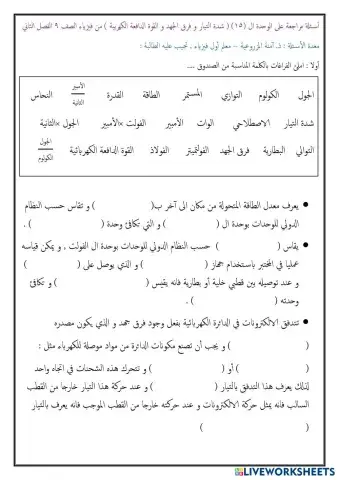 أسئلة مراجعة على الوحدة ال (١٥) ( شدة التيار و فرق الجهد و القوة الدافعة الكهربية ) من فيزياء الصف ٩ الفصل الثاني
معدة الأسئلة : د. آمنة المزروعية – معلم أول فيزياء , تجيب عليه الطالبة :
أولا : املئ الفراغات بالكلمة المناسبة من الصندوق ....
الجول الكولوم التوازي المستمر الطاقة القدرة الأمبير الثانية النحاس
شدة التيار الاصطلاحي الوات الأمبير الفولت ×الأمبير الجول ×الثانية
التوالي البطارية فرق الجهد الفولتميتر الفولاذ القوة الدافعة الكهربائية الجول الكولوم
• يعرف معدل الطاقة المتحولة من مكان الى آخر ب( ) و تقاس حسب النظام
الدولي للوحدات بوحدة ال ( ) و التي تكافئ وحدة ( ) .
• يقاس ( ) حسب النظام الدولي للوحدات بوحدة ال الفولت , و يمكن قياسه
عمليا في المختبر باستخدام جهاز ( ) و الذي يوصل على ( )
و عند توصيله بين قطبي خلية أو بطارية فانه يقيس ( ) و تكافئ
وحدته ( ) .
• تتدفق الالكترونات في الدائرة الكهربائية بفعل وجود فرق جهد و الذي يكون مصدره
( ) و يجب أن تصنع مكونات الدائرة من مواد موصلة للكهرباء مثل :
( ) أو ( ) و تتحرك هذه الشحنات في اتجاه واحد
لذلك يعرف هذا التدفق بالتيار ( ) و عند حركة هذا التيار خارجا من القطب
السالب فانه يمثل حركة الالكترونات و عند حركته خارجا من القطب الموجب فانه يعرف بالتيار
( )
LIVEWORKSHEETS